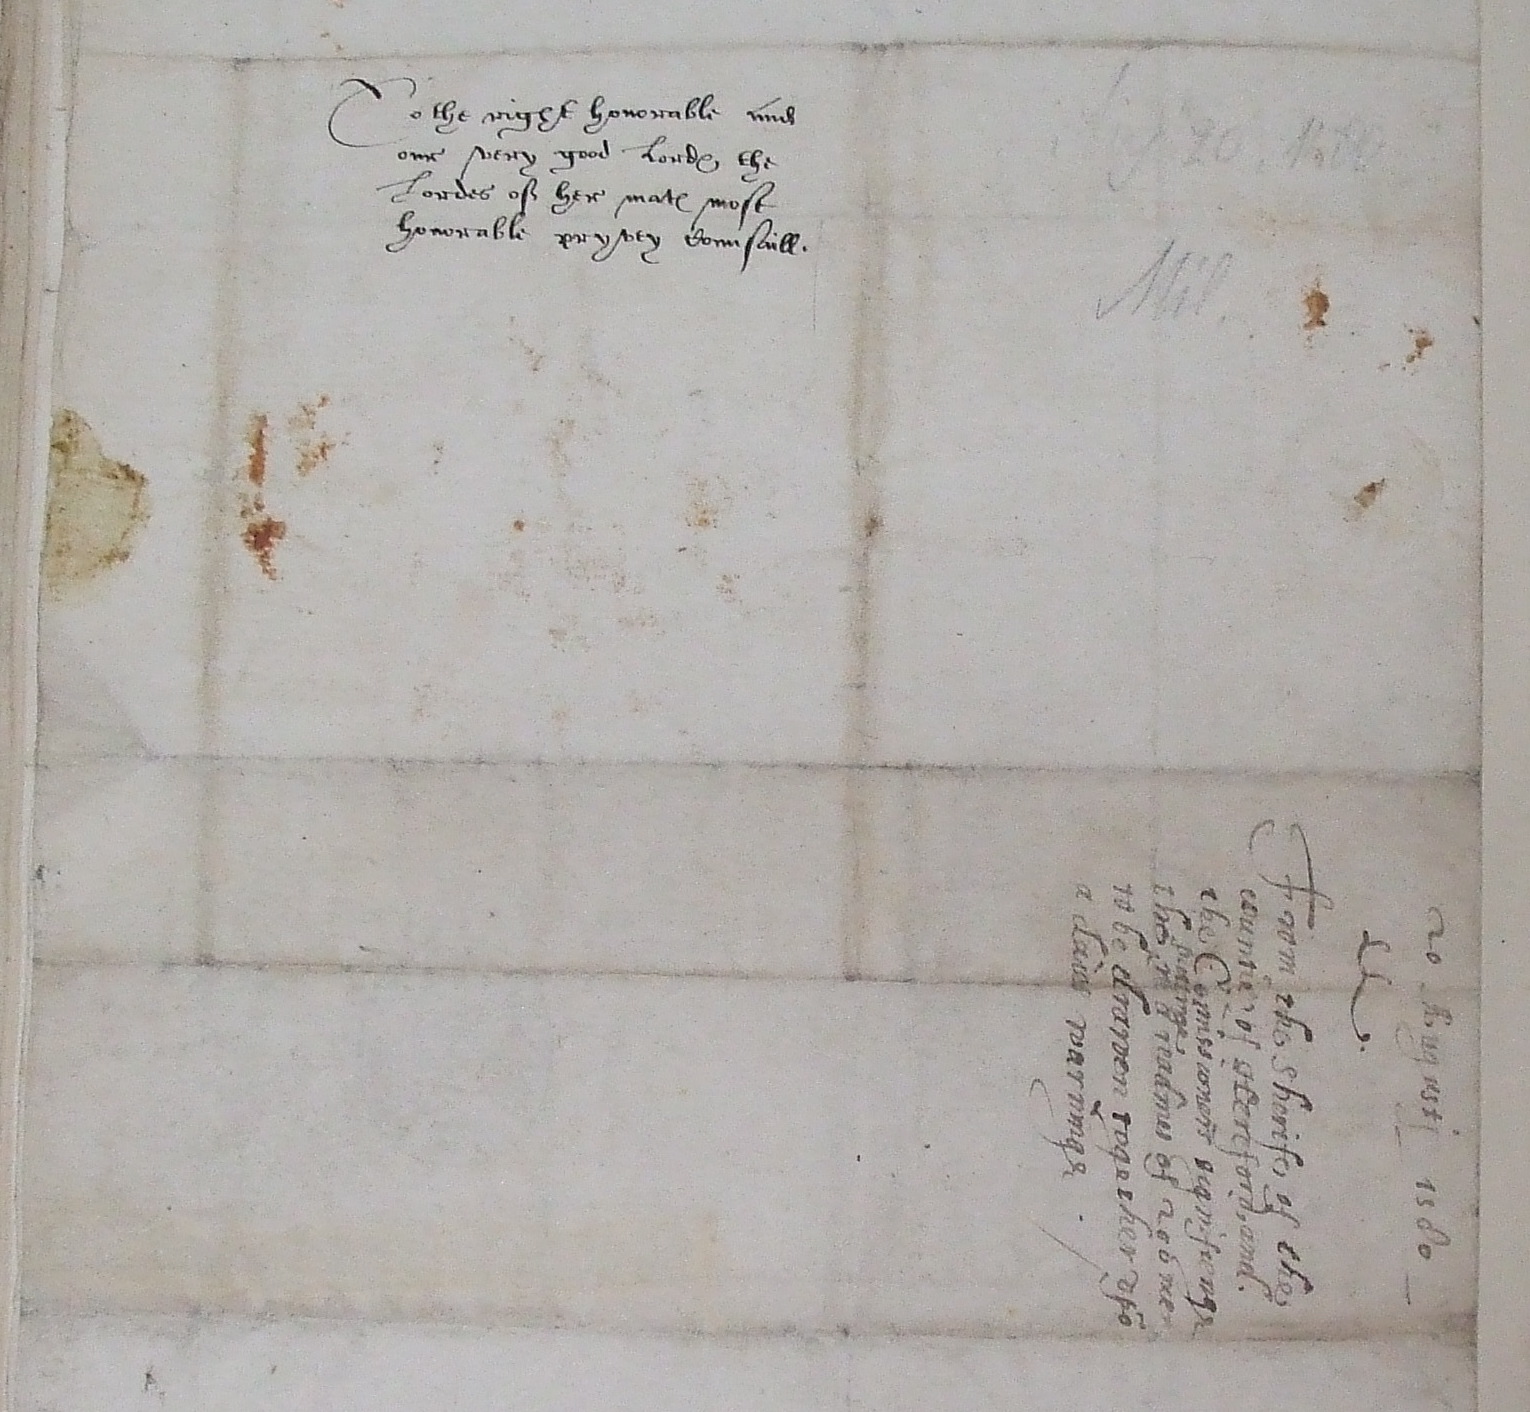 To the right honorable and
our very good Lordꝭ the
Lordes off her matꝭ most
honorable pryvey Counsaill.
20. 1580
Mil.
20 Augusti 1580
From the Sherife of the
countie of Hereford, and
the Comissionrs signifieng
putting
the in readines of 200 men
to be drawen together vpō
a daies warninge